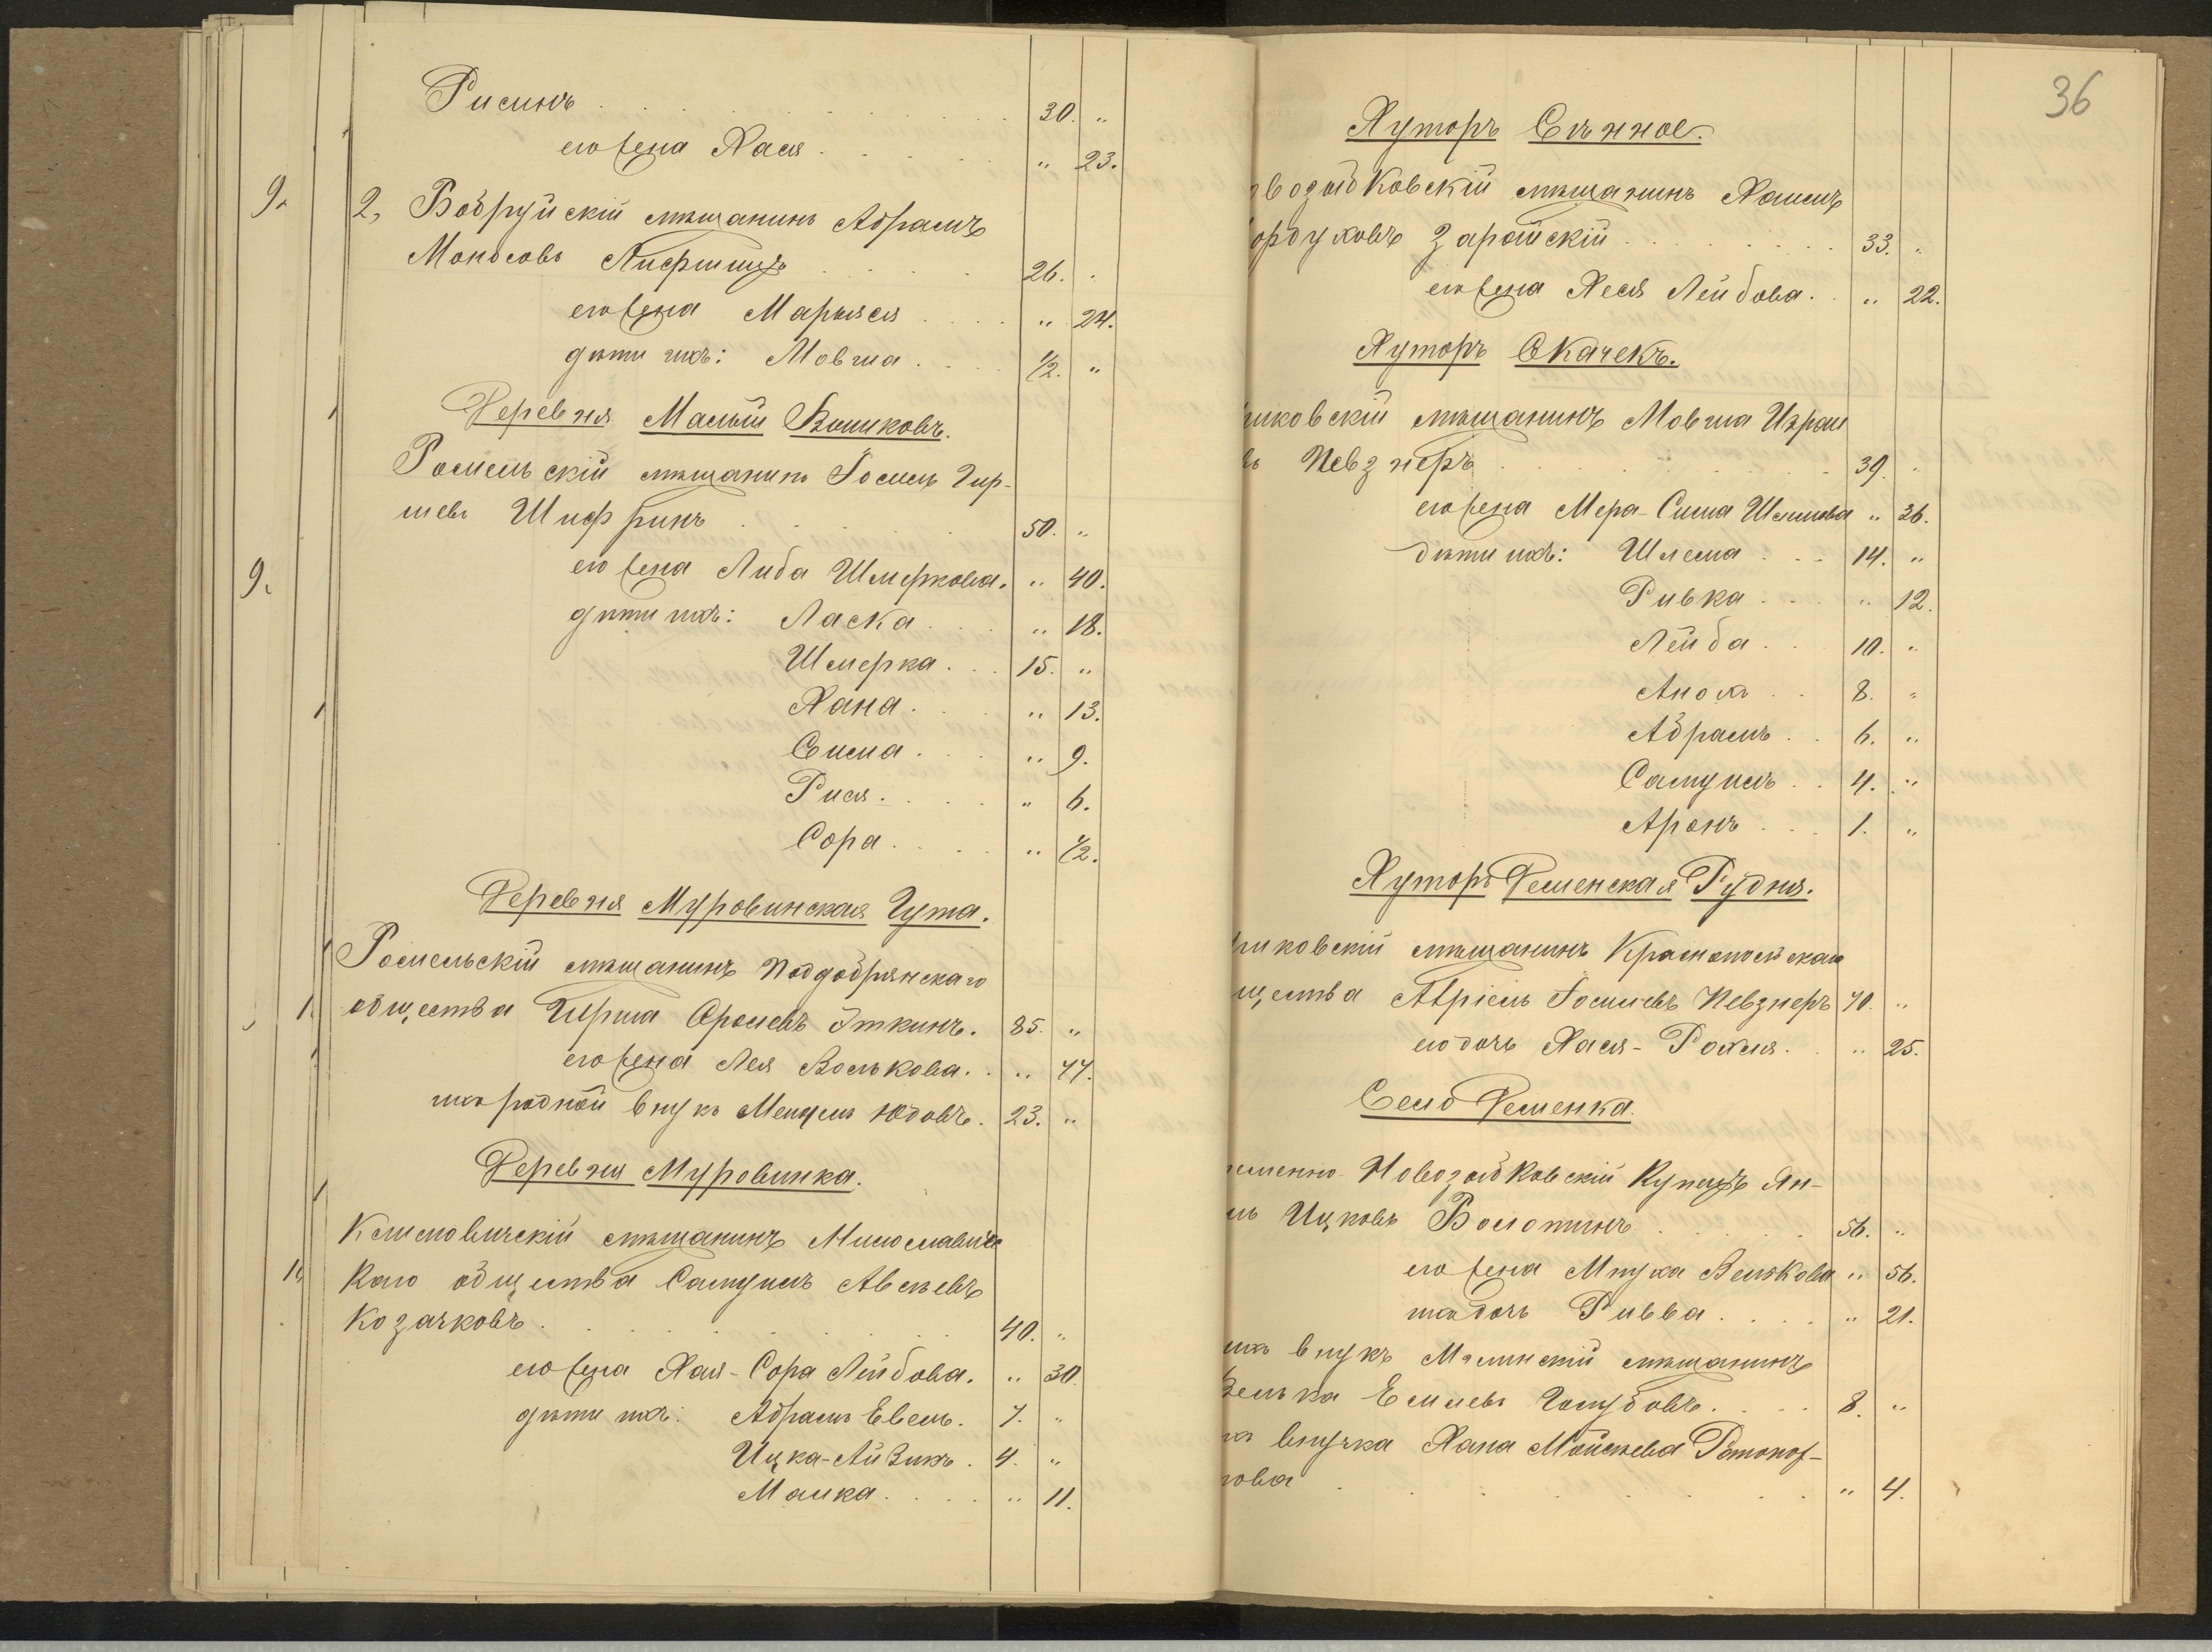 Рисинъ . . . 30. "
его жена Хася . . . " 23.
9. 2, Бобруйскій мѣщанинъ Абрамъ
Моносовъ Лифшицъ . . . 26. "
его жена Марьяся . . . " 24.
дѣти ихъ: Мовша . . . 1/2. "
Деревня Малый Вошиковъ.
Гомельскій мѣщанинъ Іосель Гир-
шевъ Шифринъ . . . 50. "
9. его жена Либа Шмеркова. " 40.
дѣти ихъ: Ласка . . . " 18.
Шмерка . . . 15. "
Хана . . . " 13.
Сима . . . " 9.
Рися . . . " 6.
Сора . . . " 1/2.
Деревня Муровинская Гута.
Гомельскій мѣщанинъ Поддобрянскаго
1. общества Гирша Ароневъ Эткинъ. 85. "
его жена Лея Волькова. . " 77.
ихъ родной внукъ Мендель Юдовъ. 23. "
Деревня Муровинка.
Климовичскій мѣщанинъ Милославичс
каго общества Самуилъ Авсѣевъ
Козачковъ . . . 40. "
его жена Хая-Сора Лейбова. " 30.
дѣти ихъ: Абрамъ Евель. 7. "
Ицка-Айзикъ . 4. "
Малка . . . " 11.
36
Хуторъ Сѣнное.
возыбковскій мѣщанинъ Хаимъ
ордуховъ Зарайскій . . . 33. "
его жена Хеся Лейбова. . " 22.
Хуторъ Скачекъ.
иковскій мѣщанинъ Мовша Израи
въ Певзнеръ . . . 39. "
его жена Мера-Сима Шлемова " 36.
дѣти ихъ: Шлема . . . 14. "
Ривка . . . " 12.
Лейба . . . 10. "
Анохъ . . . 8. "
Абрамъ . . 6. "
Самуилъ . . 4. "
Аронъ . . . 1. "
Хуторъ Деменская Рудня.
иковскій мѣщанинъ Краснопольскаго
щества Авріель Іосилевъ Певзнеръ 70. "
его дочь Хася-Рохля . . " 25.
Село Деменка.
еменно-Новозыбковскій Купецъ Ян-
ль Ицковъ Болотинъ . . . 56. "
его жена Мнуха Велькова " 56.
ихъ дочь Ривва . . . " 21.
ихъ внукъ Мглинскій мѣщанинъ
Велька Есилевъ Голубовъ . . . 8. "
хъ внучка Хана Моисѣева
нова . . . " 4.